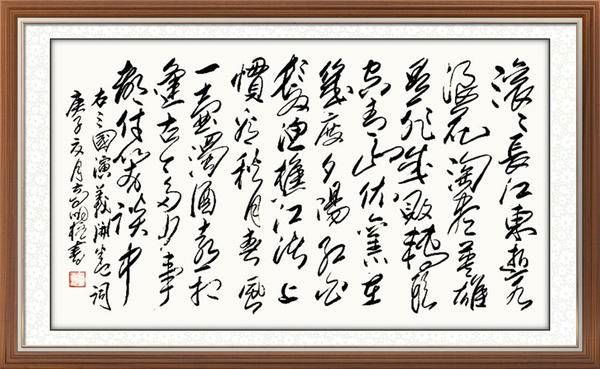 滚〻長江東逝水
浪花淘盡英雄
是非成敗轉頭
空青山依舊在
幾度夕陽紅白
髮漁樵江渚上
慣看秋月春風
一壺濁酒喜相
逢古今多少事
都付笑談中
右三國演義開卷詞
庚子亥月書